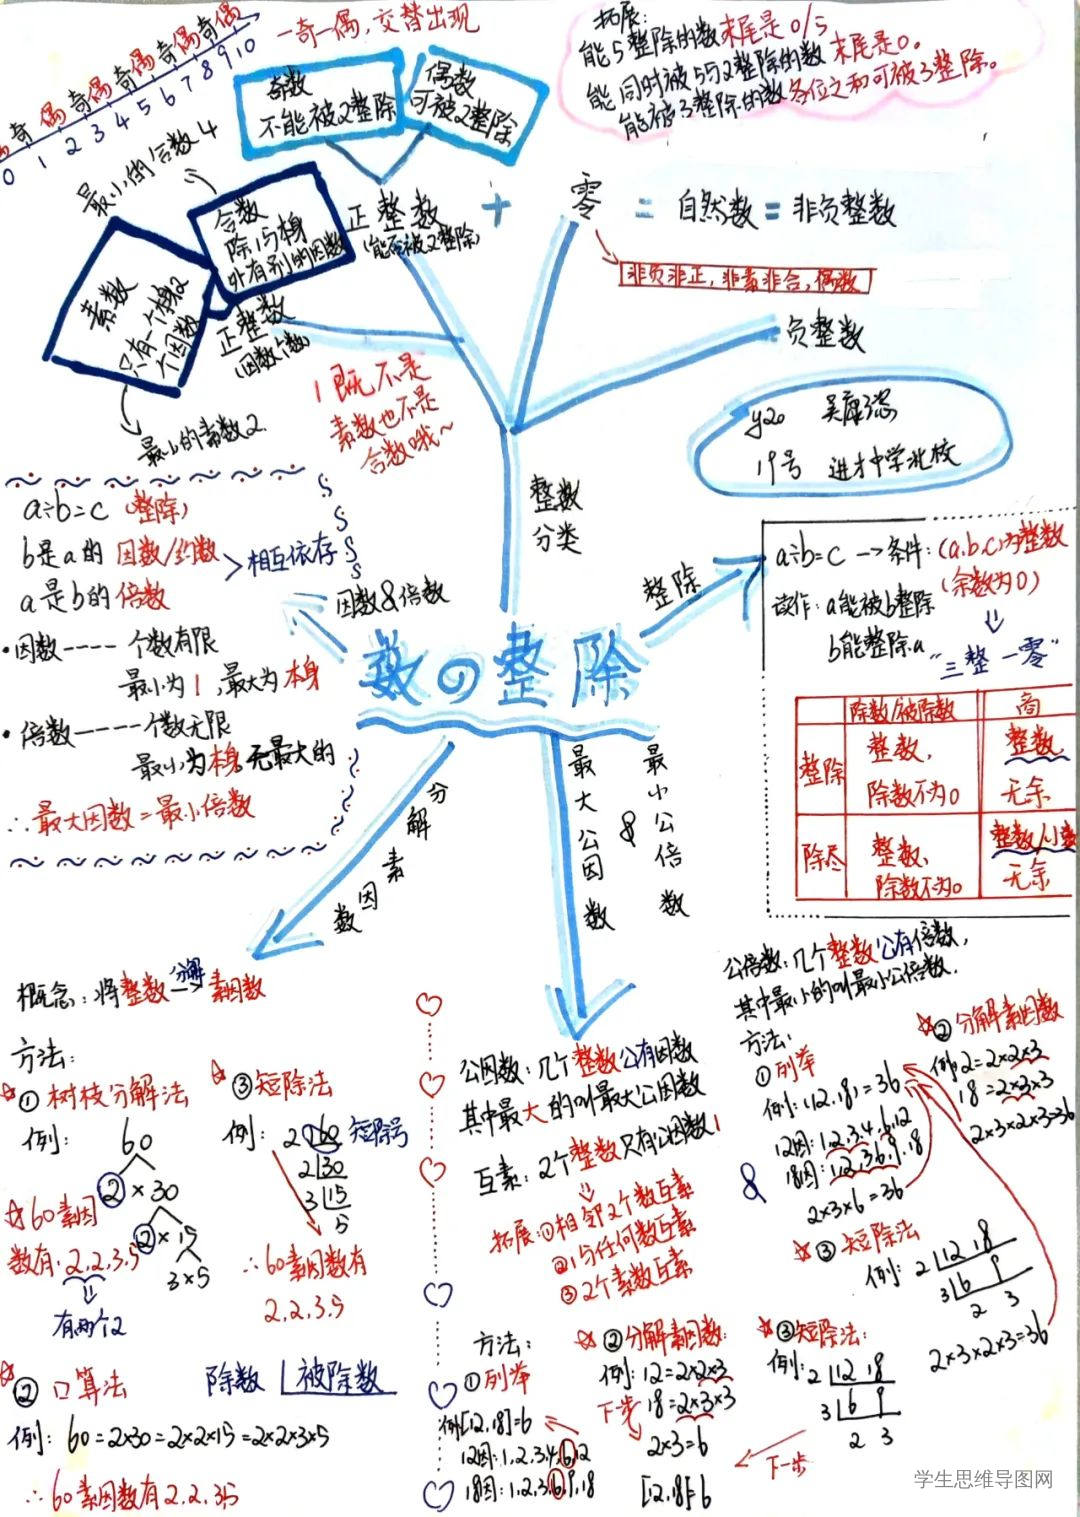 奇 偶 奇 偶 奇 偶 奇 偶 奇 偶
0 1 2 3 4 5 6 7 8 9 10
一奇一偶,交替出现
奇数
不能被2整除
偶数
可被2整除
拓展:
能5整除的数末尾是0/5
能同时被5与2整除的数末尾是0。
能被3整除的数各位之和可被3整除。
最小的合数4
合数
除1与本身
外有别的因数
素数
只有一个本身2
个因数
最小的素数2
正整数
(能否被2整除)
+
零
= 自然数 = 非负整数
非负非正,非素非合,偶数
正整数
(因数个数)
负整数
1既不是
素数也不是
合数哦~
整数
分类
y20
19号 进才中学北校
a÷b=c (整除)
b是a的 因数/约数
a是b的倍数
>相互依存
·因数---- 个数有限
最小为1,最大为本身
·倍数---- 个数无限
最小为本身,无最大的
∴最大因数=最小倍数
因数&倍数
整除
数の整除
a÷b=c → 条件:(a.b.c)为整数
(余数为0)
读作:a能被b整除
b能整除a
"三整一零"
除数/被除数 商
整除 整数, 整数
除数不为0 无余
除尽 整数、 整数/小数
除数不为0 无余
分解素因数
最大公因数
&
最小公倍数
概念:将整数 分解→ 素因数
方法:
①树枝分解法
例: 60
2×30
2×15
3×5
60素因
数有,2,2,3,5
有两个2
③短除法
例: 2 60 短除号
2 30
3 15
5
∴60素因数有
2,2,3,5
②口算法
除数 被除数
例: 60=2×30=2×2×15=2×2×3×5
∴60素因数有2,2,3 5
公因数:几个整数公有因数
其中最大的叫最大公因数
互素:2个整数只有公因数1
拓展:①相邻2个数互素
②1与任何数互素
③2个素数互素
方法:
①列举
例[12,18]=6
12因:1,2,3,4,6,12
18因:1,2,3,6,9,18
②分解素因数:
例:12=2×2×3
18=2×3×3
下步
2×3=6
[12,18]=6
③短除法:
例: 2 12 18
3 6 9
2 3
下一步
公倍数:几个整数公有倍数,
其中最小的叫最小公倍数.
方法:
①列举
例:(12,18)=36
12因:1,2,3,4,6,12
18因:1,2,3,6,9,18
2×3×6=36
&
②分解素因数
例12=2×2×3
18=2×3×3
2×3×2×3=36
③短除法
例: 2 12 18
3 6 9
2 3
2×3×2×3=36
学生思维导图网